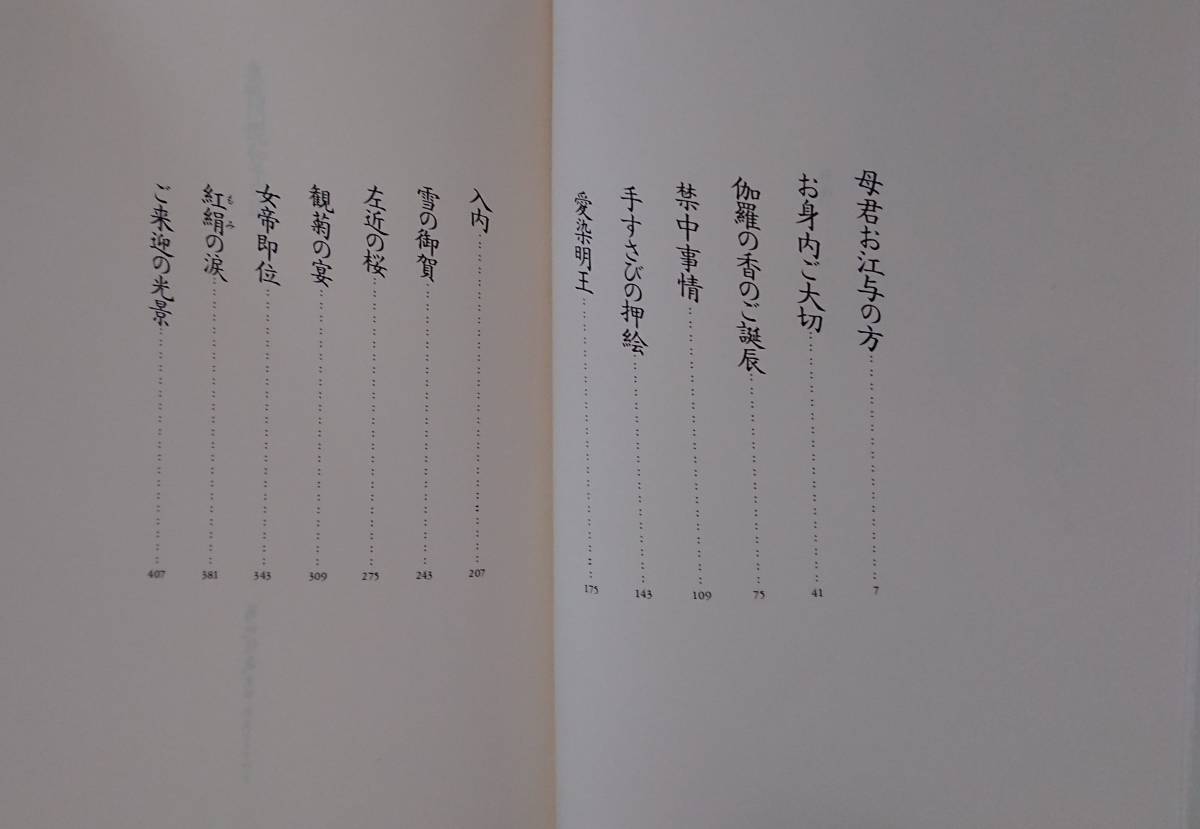 母君お江与の方……………………7
お身内ご大切……………………41
伽羅の香のご誕辰……………………75
禁中事情……………………109
手すさびの押絵……………………143
愛染明王……………………175
入内……………………207
雪の御賀……………………243
左近の桜……………………275
観菊の宴……………………309
女帝即位……………………343
紅絹の涙……………………381
もみ
ご来迎の光景……………………407